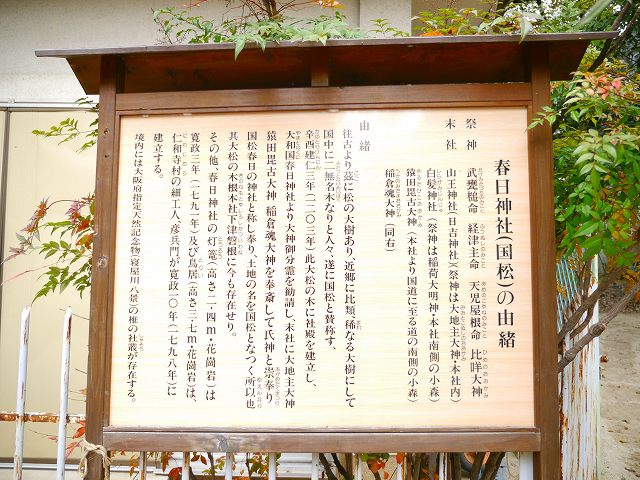 春日神社(国松)の由緒
祭神 武甕槌命 経津主命 天児屋根命 比咩大神
末社 山王神社(日吉神社)(祭神は大地主大神・本社内)
白髪神社(祭神は稲荷大明神・本社南側の小森)
猿田毘古大神(本社より国道に至る道の南側の小森)
稲倉魂大神(同右)
由緒
往古より茲に松の大樹あり、近郷に比類、稀なる大樹にして
国中に二無名木なりと人々、遂に国松と賛称す、
辛酉建仁三年(一二〇三年)此大松の木に社殿を建立し、
大和国春日神社より大神御分霊を勧請し、末社に大地主大神
猿田毘古大神 稲倉魂大神を奉斎して氏神と崇奉り
国松春日の神社と称し奉り、土地の名を国松となつく所以也
其大松の木根本社下津磐根に今も存在せり。
その他、春日神社の灯篭(高さ二・一四m・花崗岩)は
寛政三年(一七九一年)及び鳥居(高さ三・七m・花崗岩)は、
仁和寺村の細工人、彦兵門が寛政一〇年(一七九八年)に
建立する。
境内には大阪府指定天然記念物(寝屋川八景)の椎の社叢が存在する。